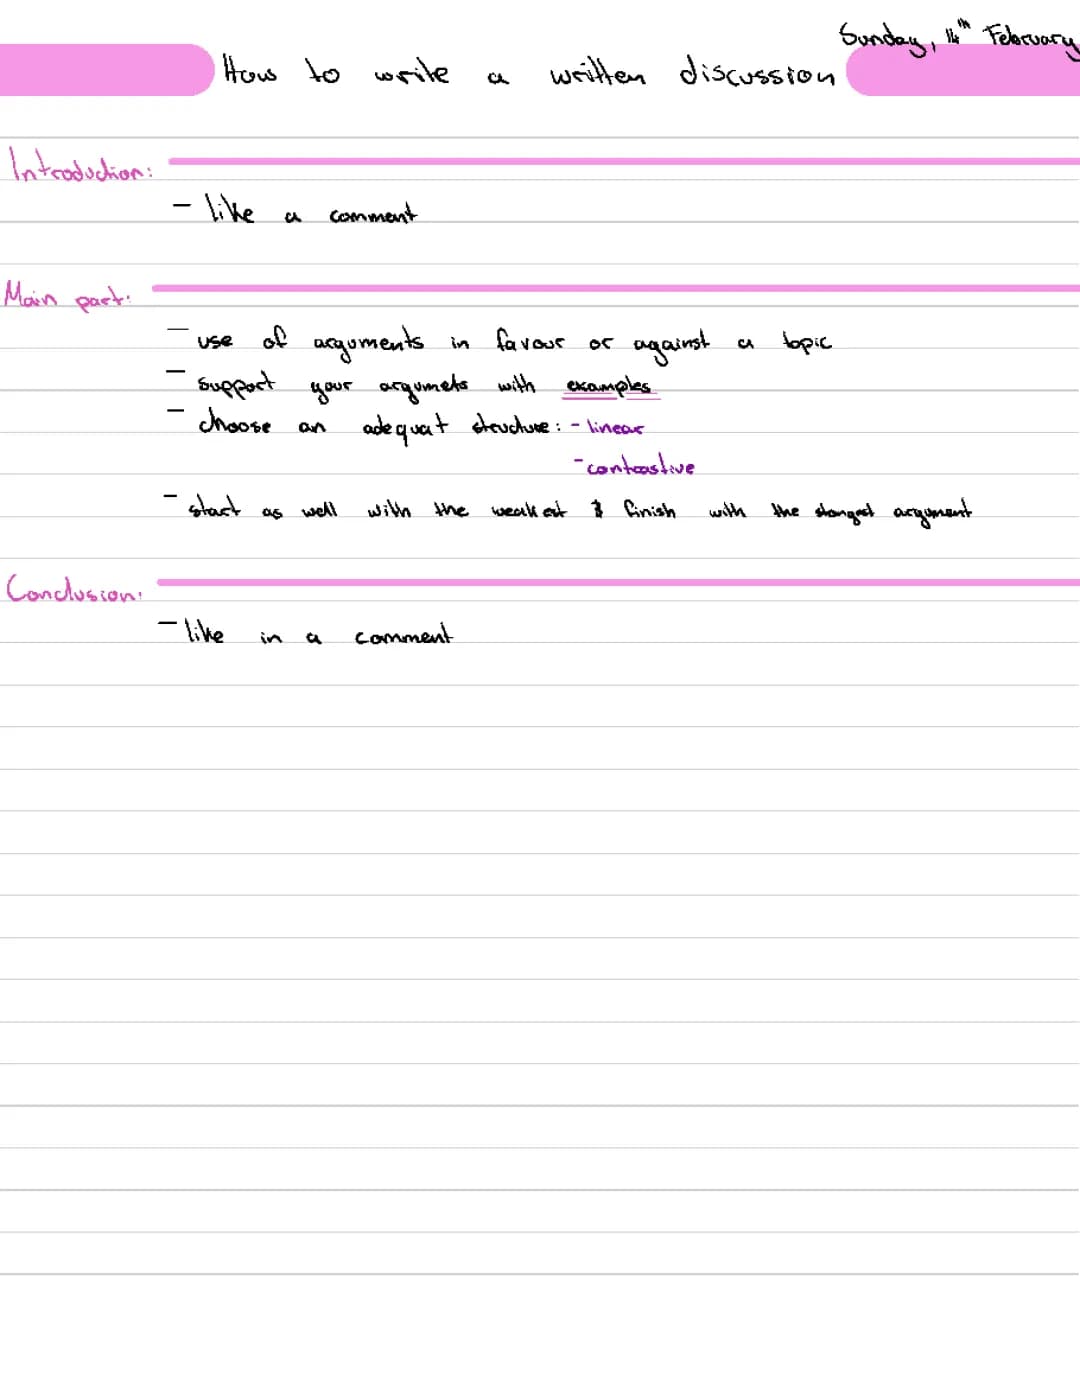 Sunday, 14th February
How to write a written discussion
Introduction:
- like a comment
Main part:
- use of arguments in favour or against a topic
- support your argumets with examples
- choose an adequat structure: - linear
- contrastive
- start as well with the weakest & finish with the stongest argument
Conclusion:
- like in a comment